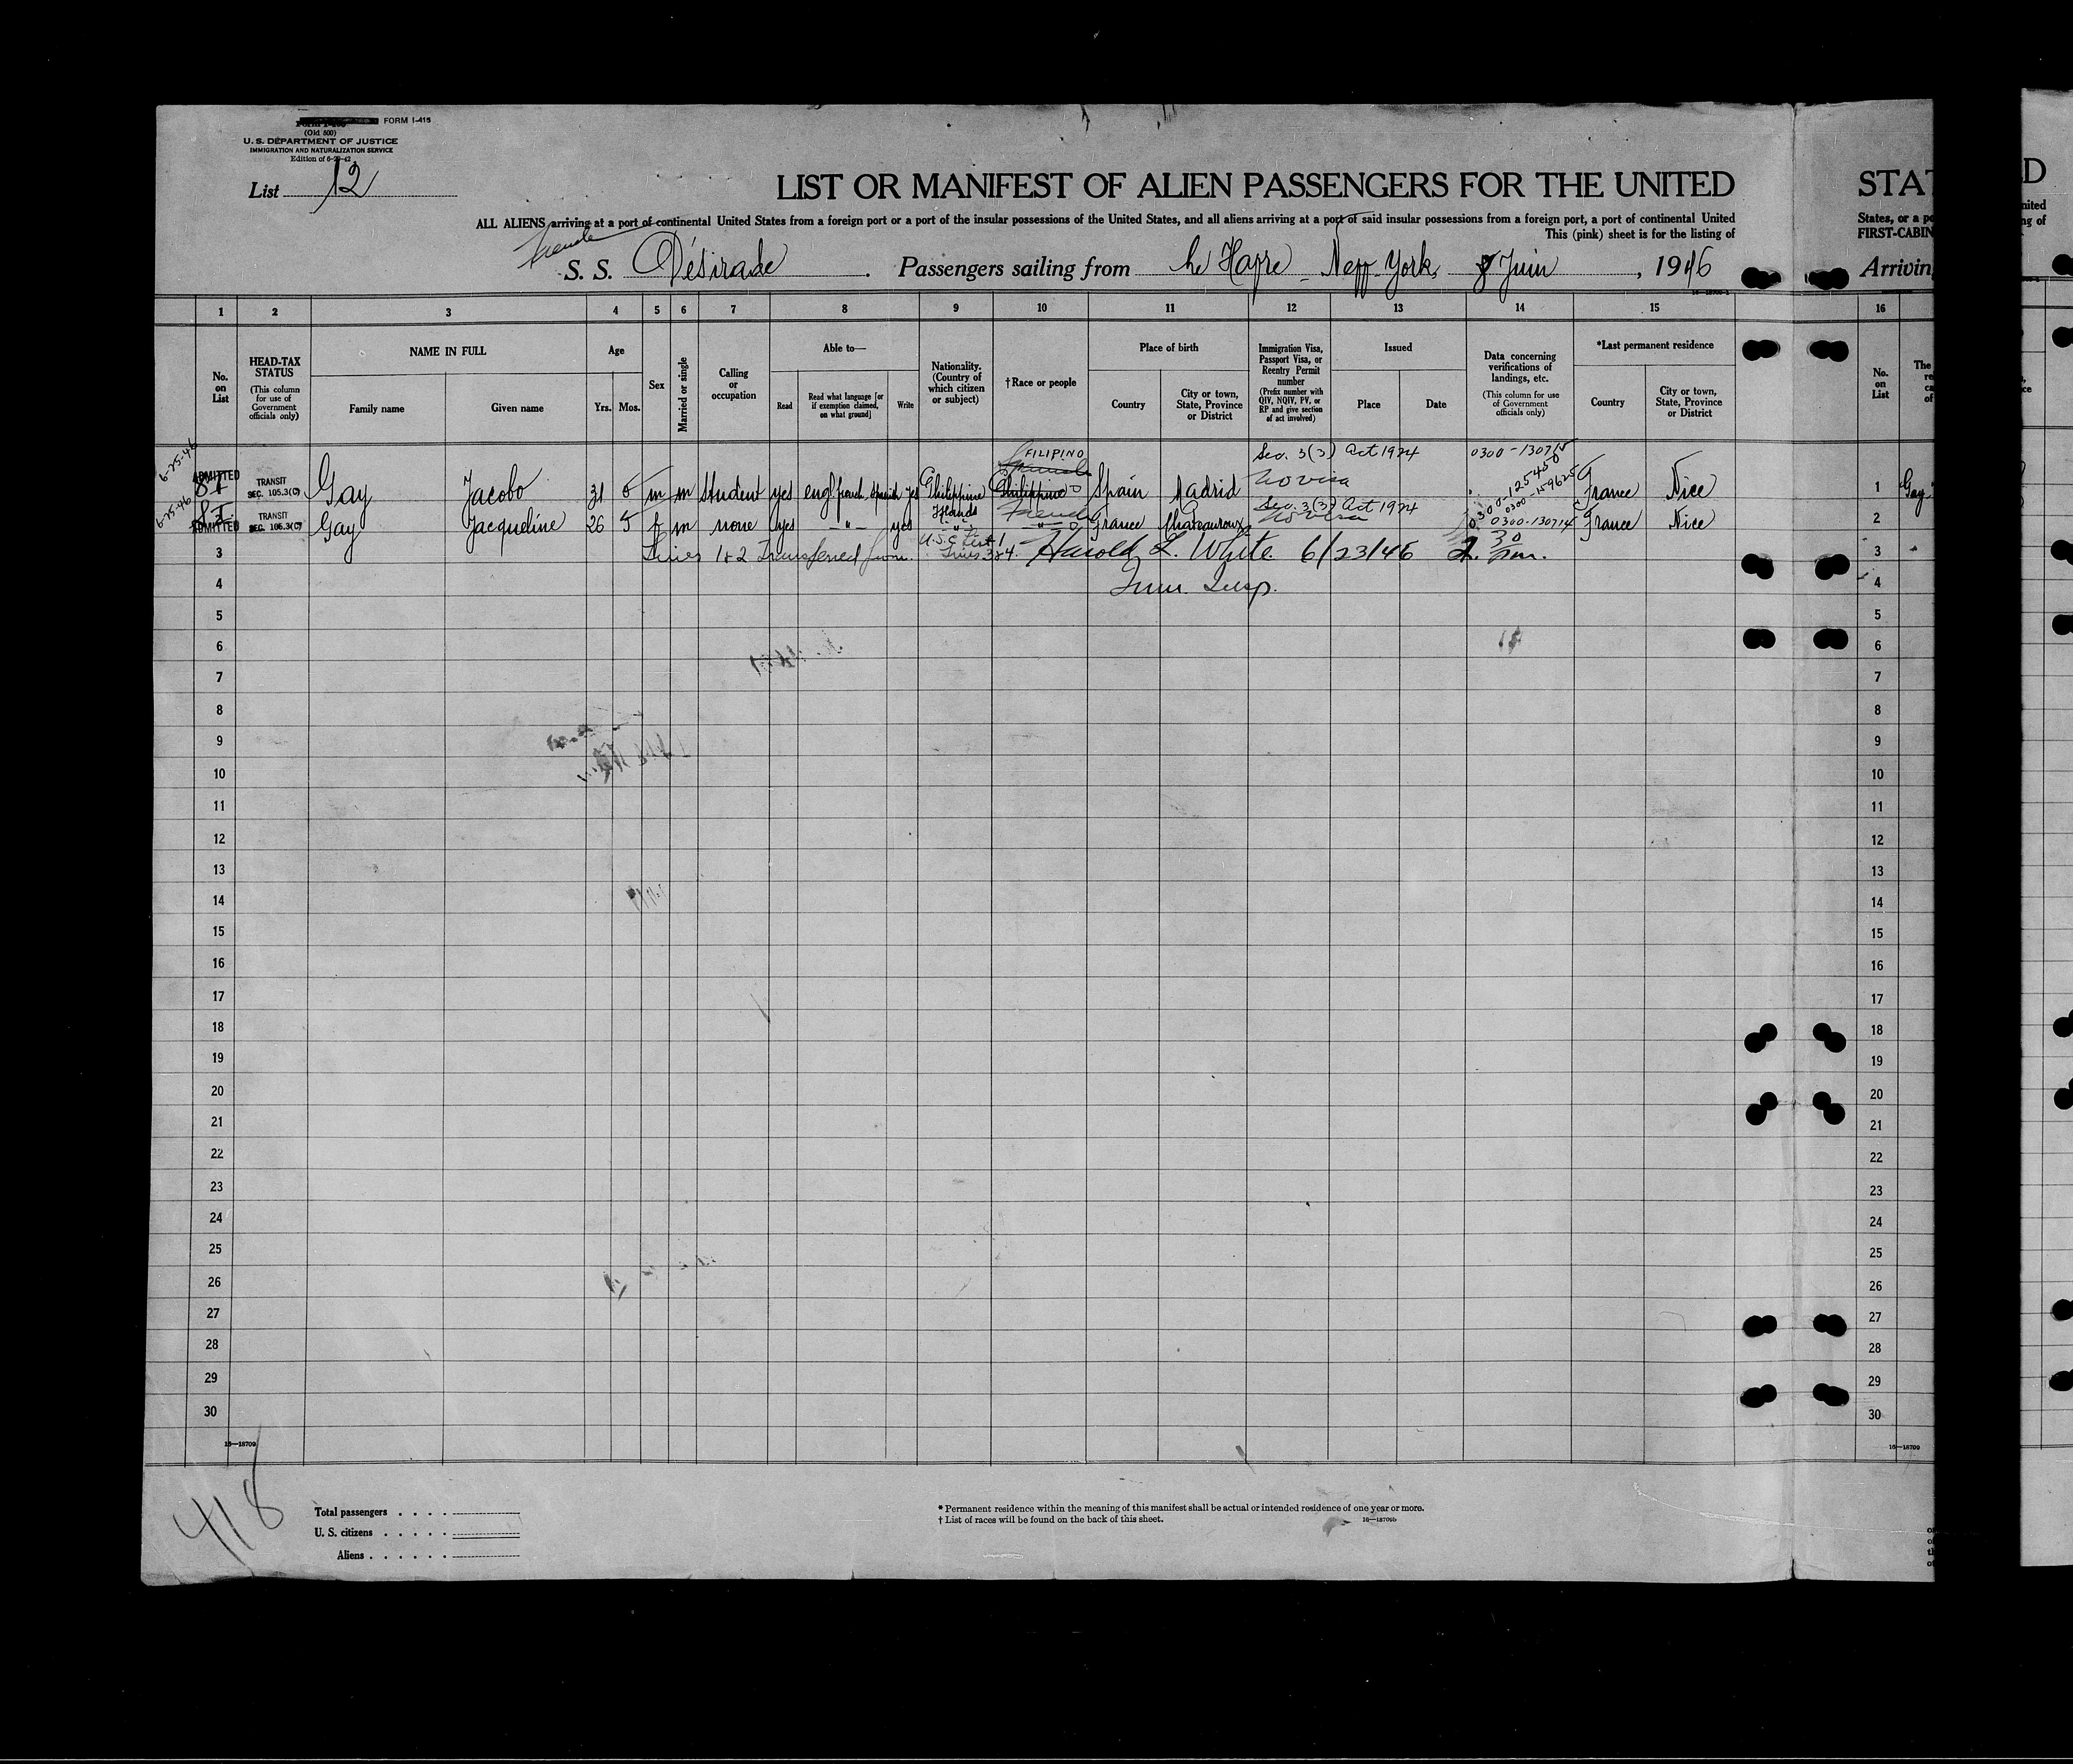 FORM I-415
(Old 500)
U. S. DEPARTMENT OF JUSTICE
IMMIGRATION AND NATURALIZATION SERVICE
Edition of 6-29-42
List 12
LIST OR MANIFEST OF ALIEN PASSENGERS FOR THE UNITED
STAT
ALL ALIENS arriving at a port of continental United States from a foreign port or a port of the insular possessions of the United States, and all aliens arriving at a port of said insular possessions from a foreign port, a port of continental United
States, or a po
This (pink) sheet is for the listing of
FIRST-CABIN
S. S. Désirade . Passengers sailing from Le Havre - New-York, 8 Juin , 1946
Arriving
1 2 3 4 5 6 7 8 9 10 11 12 13 14 15 16
No. on List
HEAD-TAX STATUS (This column for use of Government officials only)
NAME IN FULL
Family name
Given name
Age
Yrs.
Mos.
Sex
Married or single
Calling or occupation
Able to—
Read
Read what language [or if exemption claimed, on what ground]
Write
Nationality. (Country of which citizen or subject)
†Race or people
Place of birth
Country
City or town, State, Province or District
Immigration Visa, Passport Visa, or Reentry Permit number (Prefix number with QIV, NQIV, PV, or RP and give section of act involved)
Issued
Place
Date
Data concerning verifications of landings, etc. (This column for use of Government officials only)
*Last permanent residence
Country
City or town, State, Province or District
No. on List
6-25-46 ADMITTED
FILIPINO Sec. 3(3) Act 1924 0300-130715
1 TRANSIT SEC. 105.3(C) Gay Jacobo 31 5 m m student yes engl french spanish yes Philippine Islands Philippine Spain Madrid no visa 0300-125450 France Nice 1 Gay
0300-159625
Sec. 3(3) Act 1924
6-25-46 ADMITTED TRANSIT SEC. 105.3(C) Gay Jacqueline 26 5 f m none yes -"- yes -"- French France Chateauroux no visa 0300-130714 France Nice 2
3 Lines 1 & 2 Transferred from U.S.C. List 1 Lines 3 & 4. Harold L. White 6/23/46 2.30 pm. 3
4 Imm. Insp. 4
5 5
6 6
7 7
8 8
9 9
10 10
11 11
12 12
13 13
14 14
15 15
16 16
17 17
18 18
19 19
20 20
21 21
22 22
23 23
24 24
25 25
26 26
27 27
28 28
29 29
30 30
16—18709 16—18709
418
Total passengers . . . .
U. S. citizens . . . . .
Aliens . . . . . .
* Permanent residence within the meaning of this manifest shall be actual or intended residence of one year or more.
† List of races will be found on the back of this sheet.
16—18709b